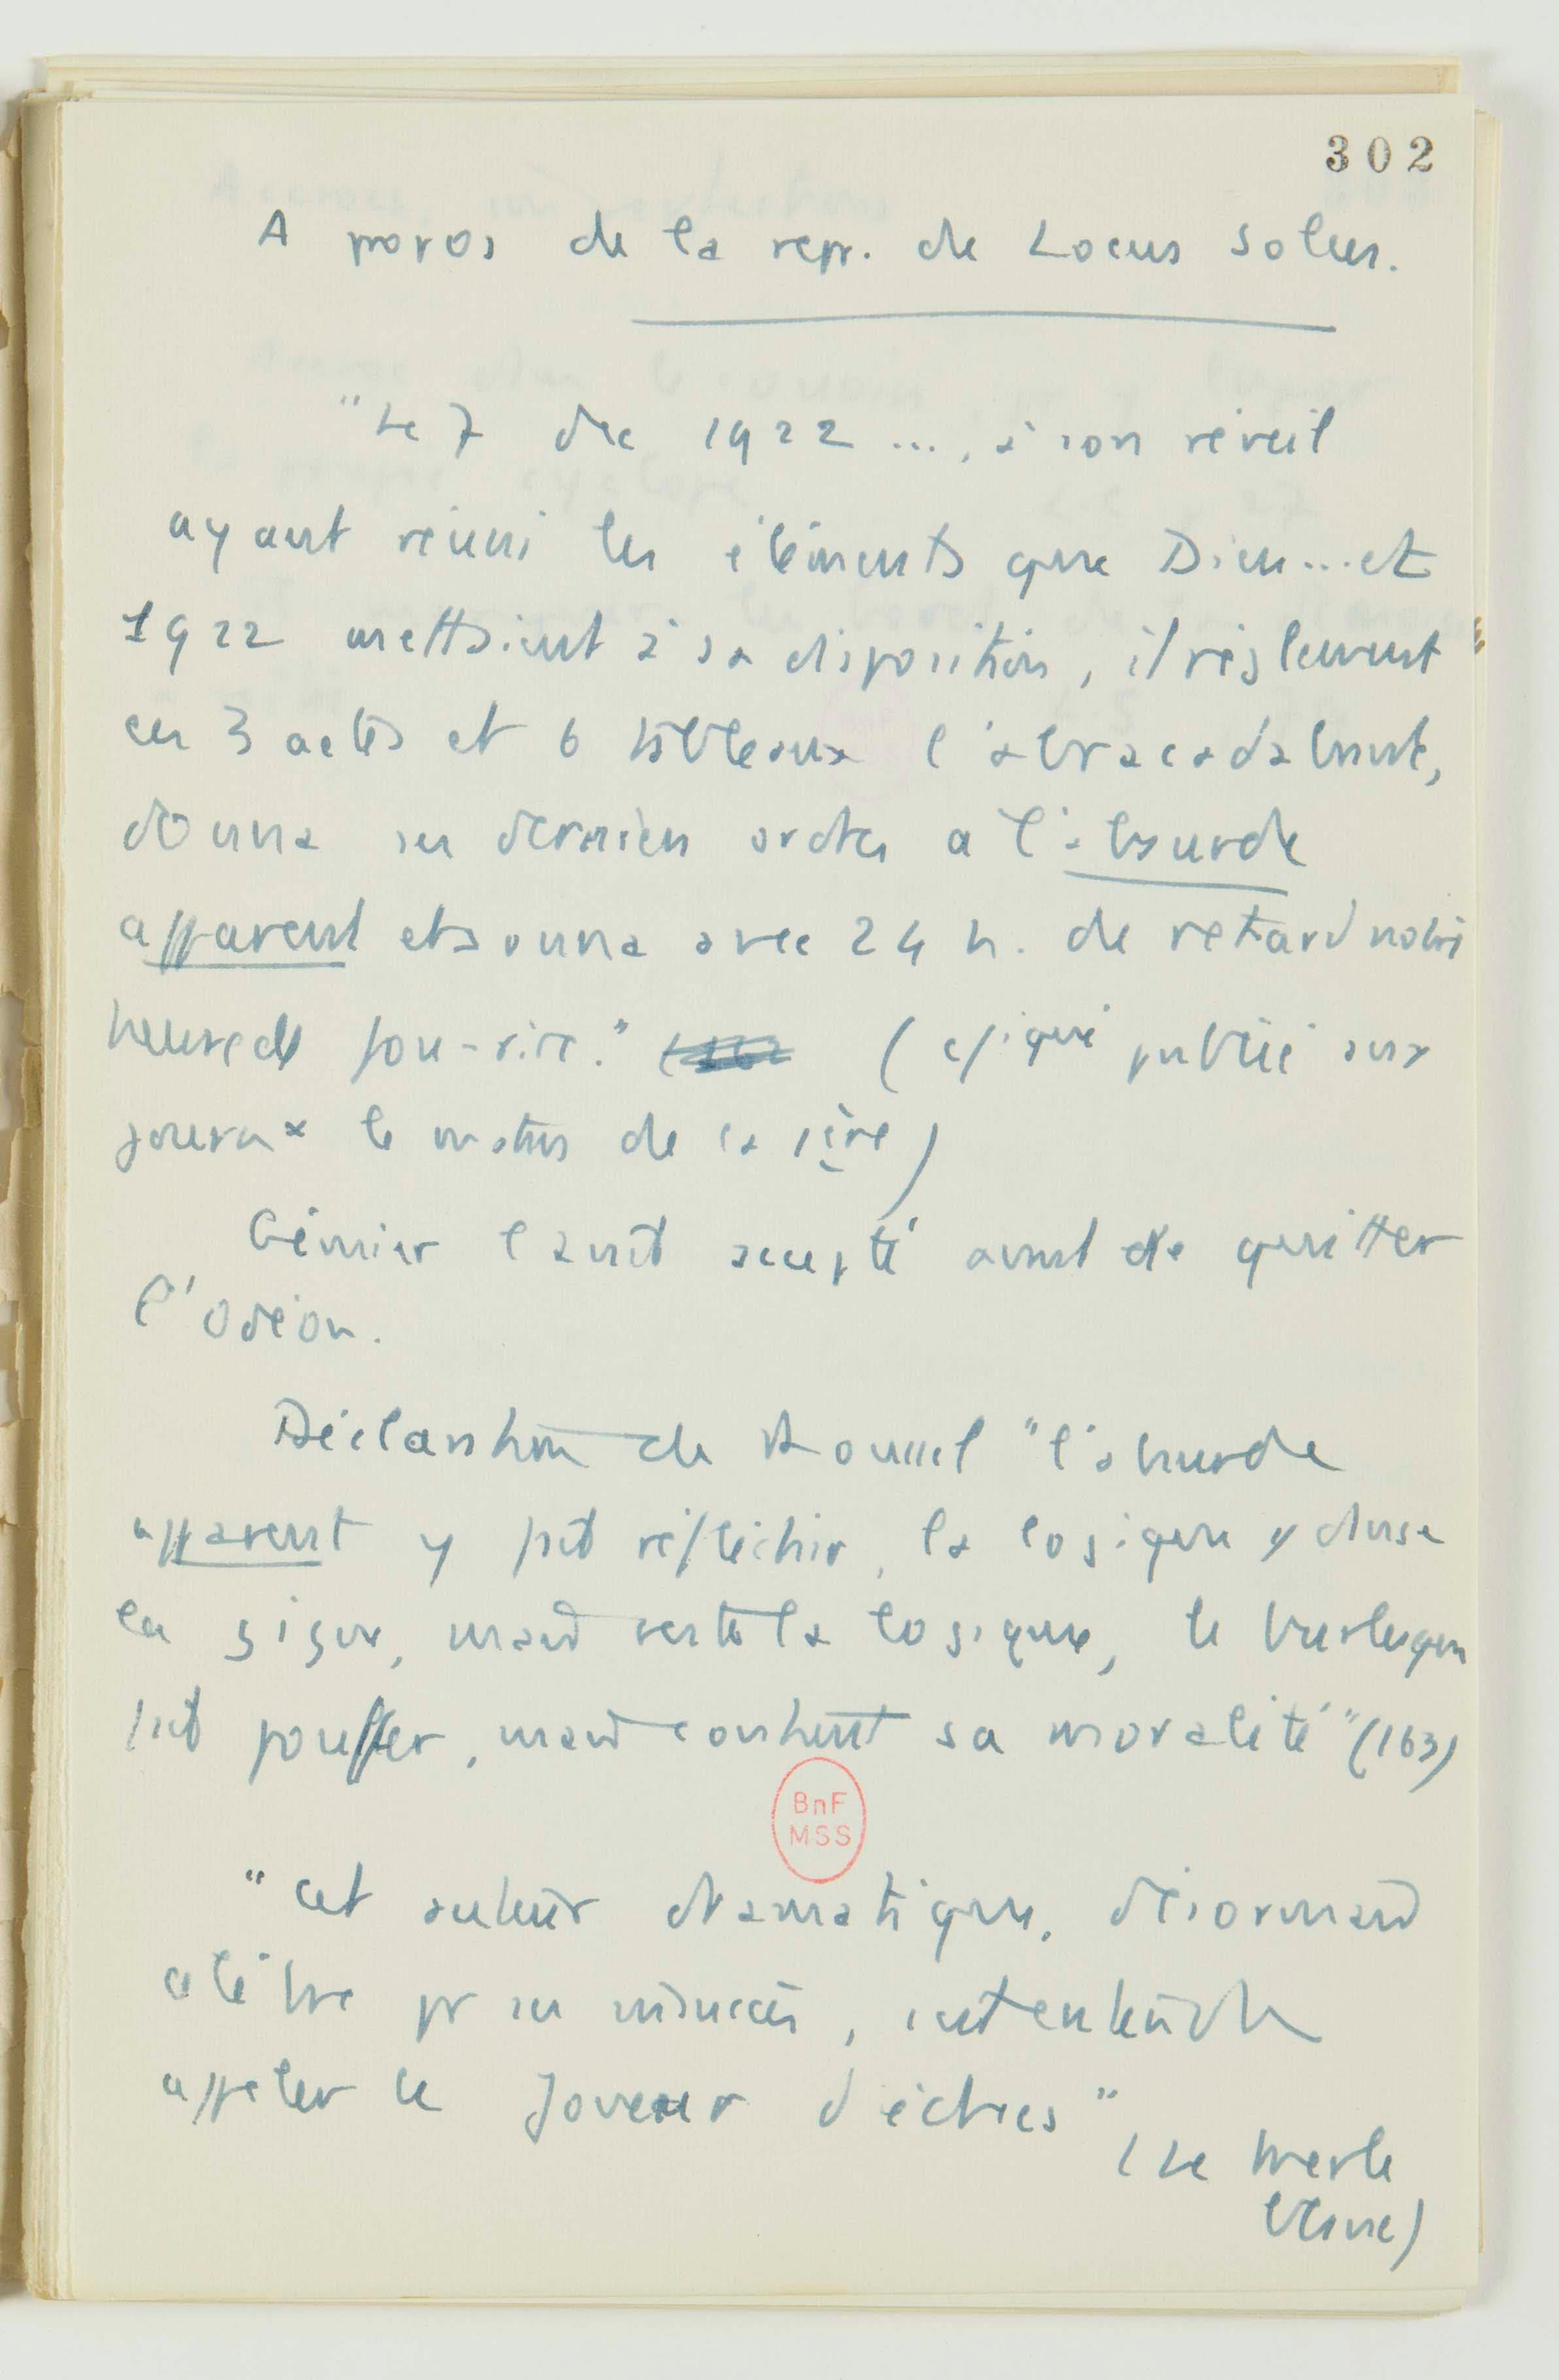 302
A propos de la repr. de Locus Solus.
"Le 7 dec 1922 ..., à son réveil
ayant réuni les éléments que Dieu...et
1922 mettaient à sa disposition, il
en 3 actes et 6 tableaux l'abracadabrant,
donna ses derniers ordres a l'absurde
apparent et sonna avec 24 h. de retard notre
heure de fou-rire." ( publié aux
journx le matin de la 1ère)
Gémier l'avait accepté avant de quitter
l'Odéon.
Déclaration de Roussel "l'absurde
apparent y fait réfléchir, la logique y danse
la gigue, mais reste la logique, le burlesque
fait pouffer, mais contient sa moralité" (163)
BnF
MSS
"Cet auteur dramatique, désormais
célèbre pr ses insuccès, intente de
appeler le Joueur d'échecs"
(Le Merle
blanc)